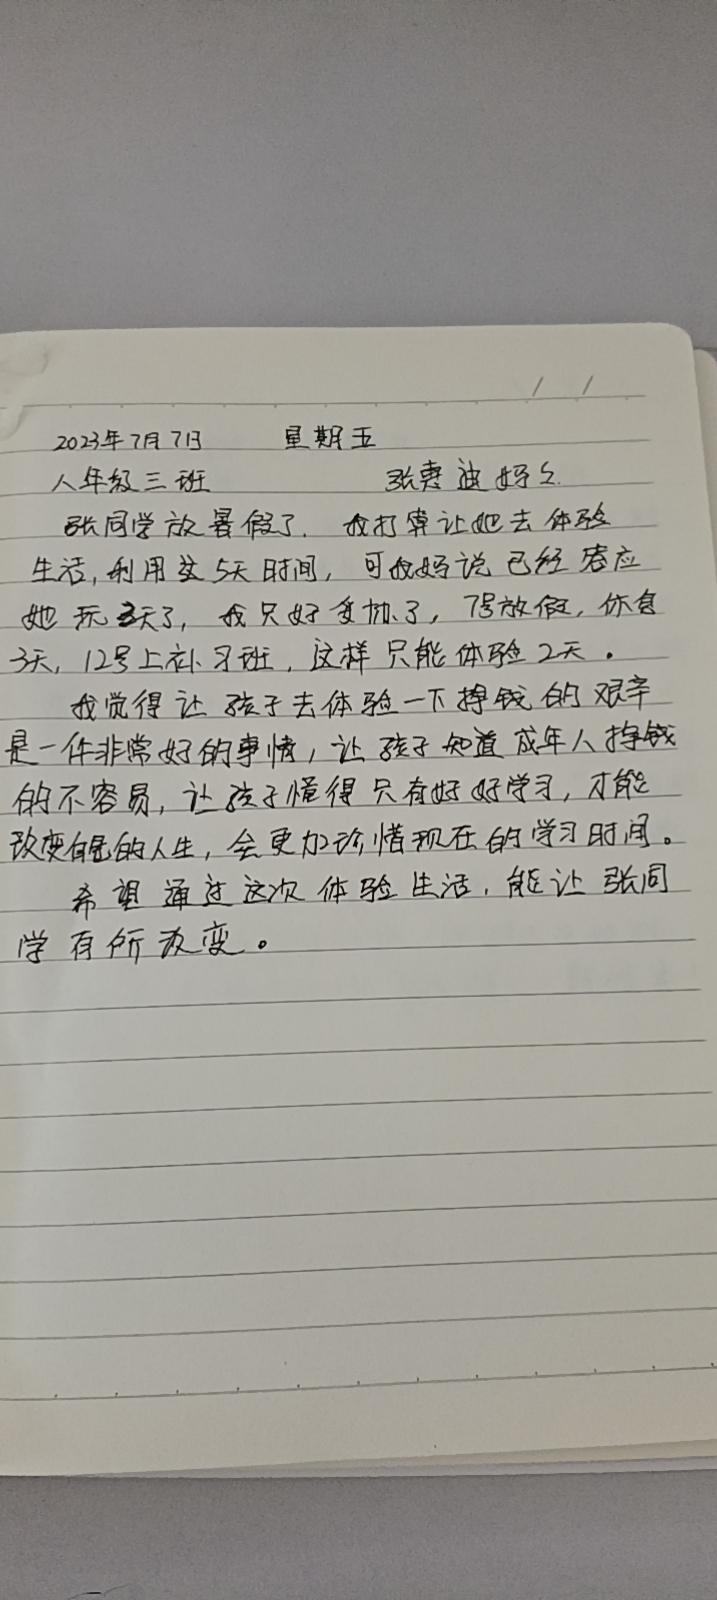 / /
2023年7月7日 星期五
八年级三班 张惠迪妈么
张同学放暑假了. 我打算让她去体验
生活,利用这5天时间, 可我妈说已经答应
她玩3天了, 我只好妥协了, 7号放假, 休息
3天, 12号上补习班, 这样只能体验2天。
我觉得让孩子去体验一下挣钱的艰辛
是一件非常好的事情, 让孩子知道成年人挣钱
的不容易, 让孩子懂得只有好好学习, 才能
改变自己的人生, 会更加珍惜现在的学习时间。
希望通过这次体验生活, 能让张同
学有所改变。